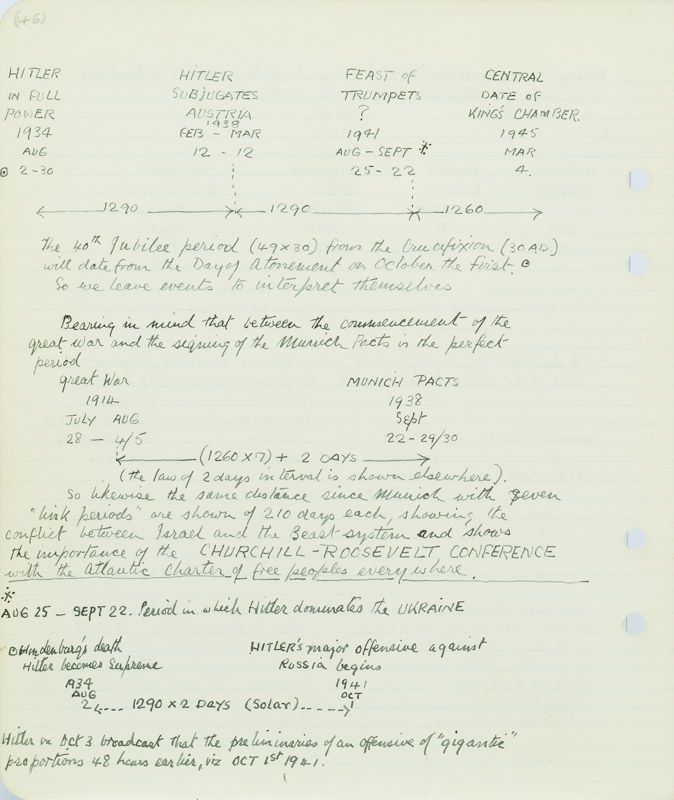 (46)
HITLER HITLER FEAST of CENTRAL
IN FULL SUBJUGATES TRUMPETS DATE OF
POWER AUSTRIA ? KING'S CHAMBER.
1934 1938 1941 1945
AUG FEB - MAR AUG - SEPT * MAR
⊙ 2-30 12 - 12 25 - 22 4.
1290 1290 1260
The 40th Jubilee period (49x30) from the Crucifixion (30 AD)
will date from the Day of Atonement on October the First. ⊙
So we leave events to interpret themselves
Bearing in mind that between the commencement of the
great war and the signing of the Munich Pacts is the perfect
period
great War MUNICH PACTS
1914 1938
JULY AUG Sept
28 - 4/5 22-29/30
(1260 x 7) + 2 DAYS
(the law of 2 days interval is shown elsewhere).
So likewise the same distance since Munich with seven
"link periods" are shown of 210 days each, showing the
conflict between Israel and the Beast system and shows
the importance of the CHURCHILL-ROOSEVELT CONFERENCE
with the Atlantic Charter of free peoples everywhere.
*
AUG 25 - SEPT 22. Period in which Hitler dominates the UKRAINE
⊙ Hindenburg's death HITLER'S major offensive against
Hitler becomes Supreme RUSSIA begins
1934 1941
AUG OCT
2 1290 x 2 DAYS (Solar) 1
Hitler on Oct 3 broadcast that the preliminaries of an offensive of "gigantic"
proportions 48 hours earlier, viz OCT 1st 1941.